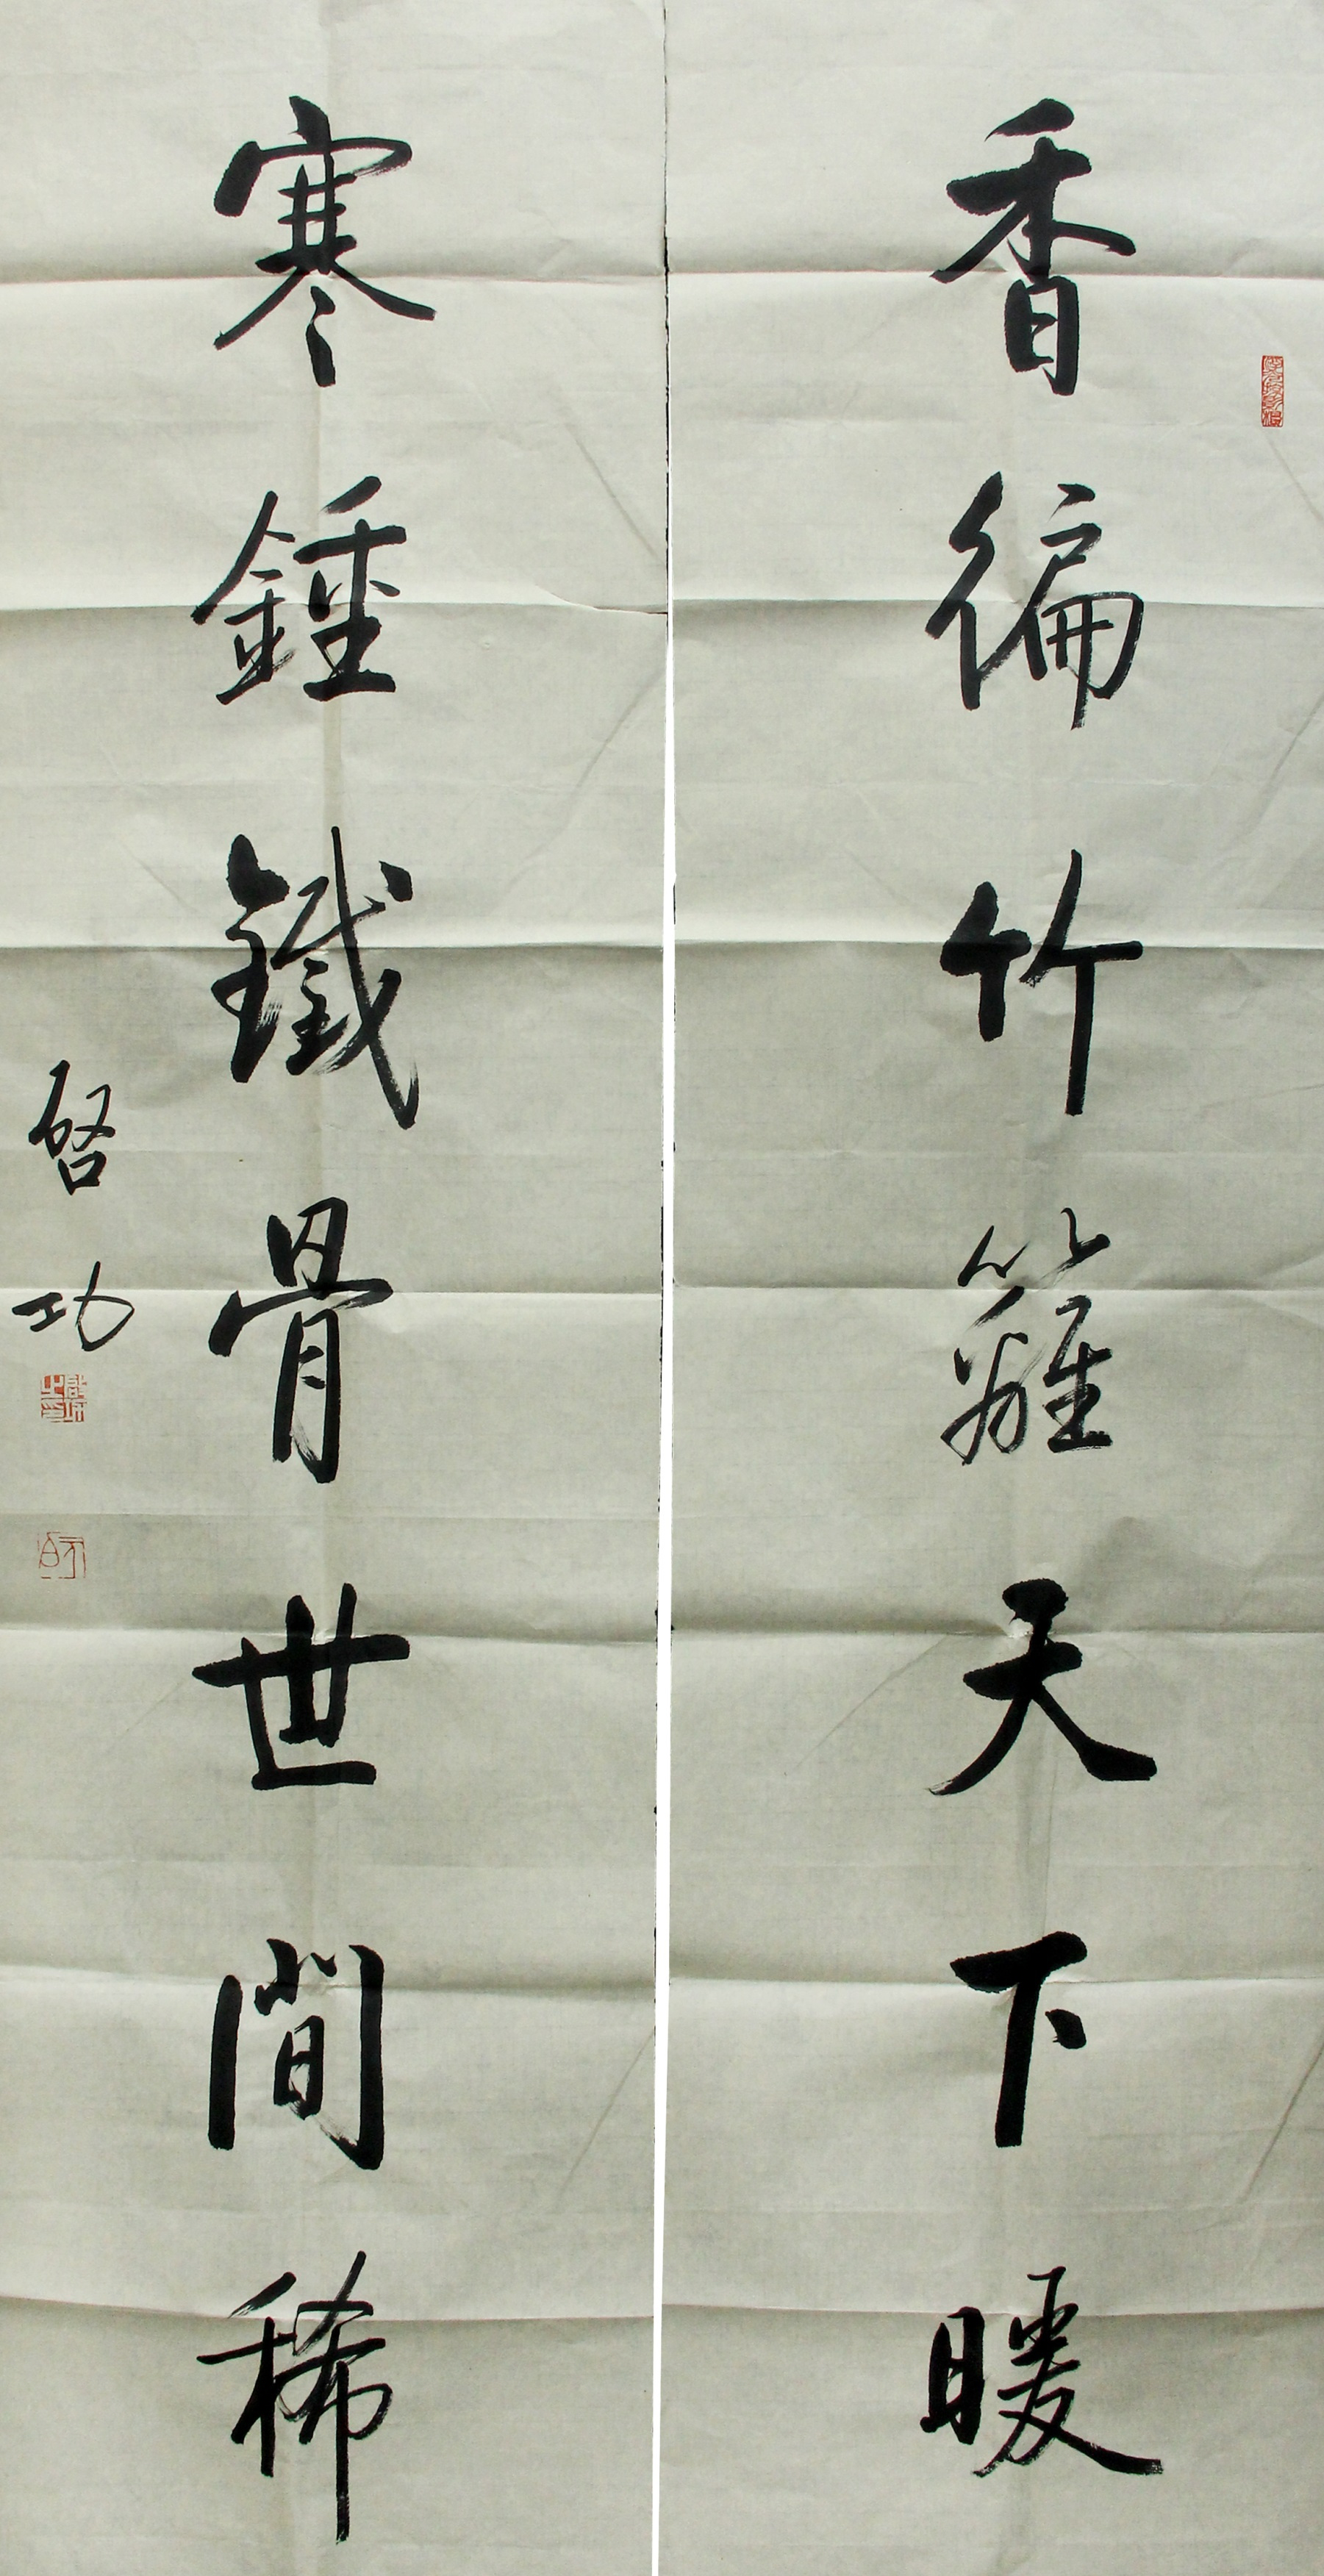 香徧竹籬天下暖
寒錘鐵骨世間稀
啓功